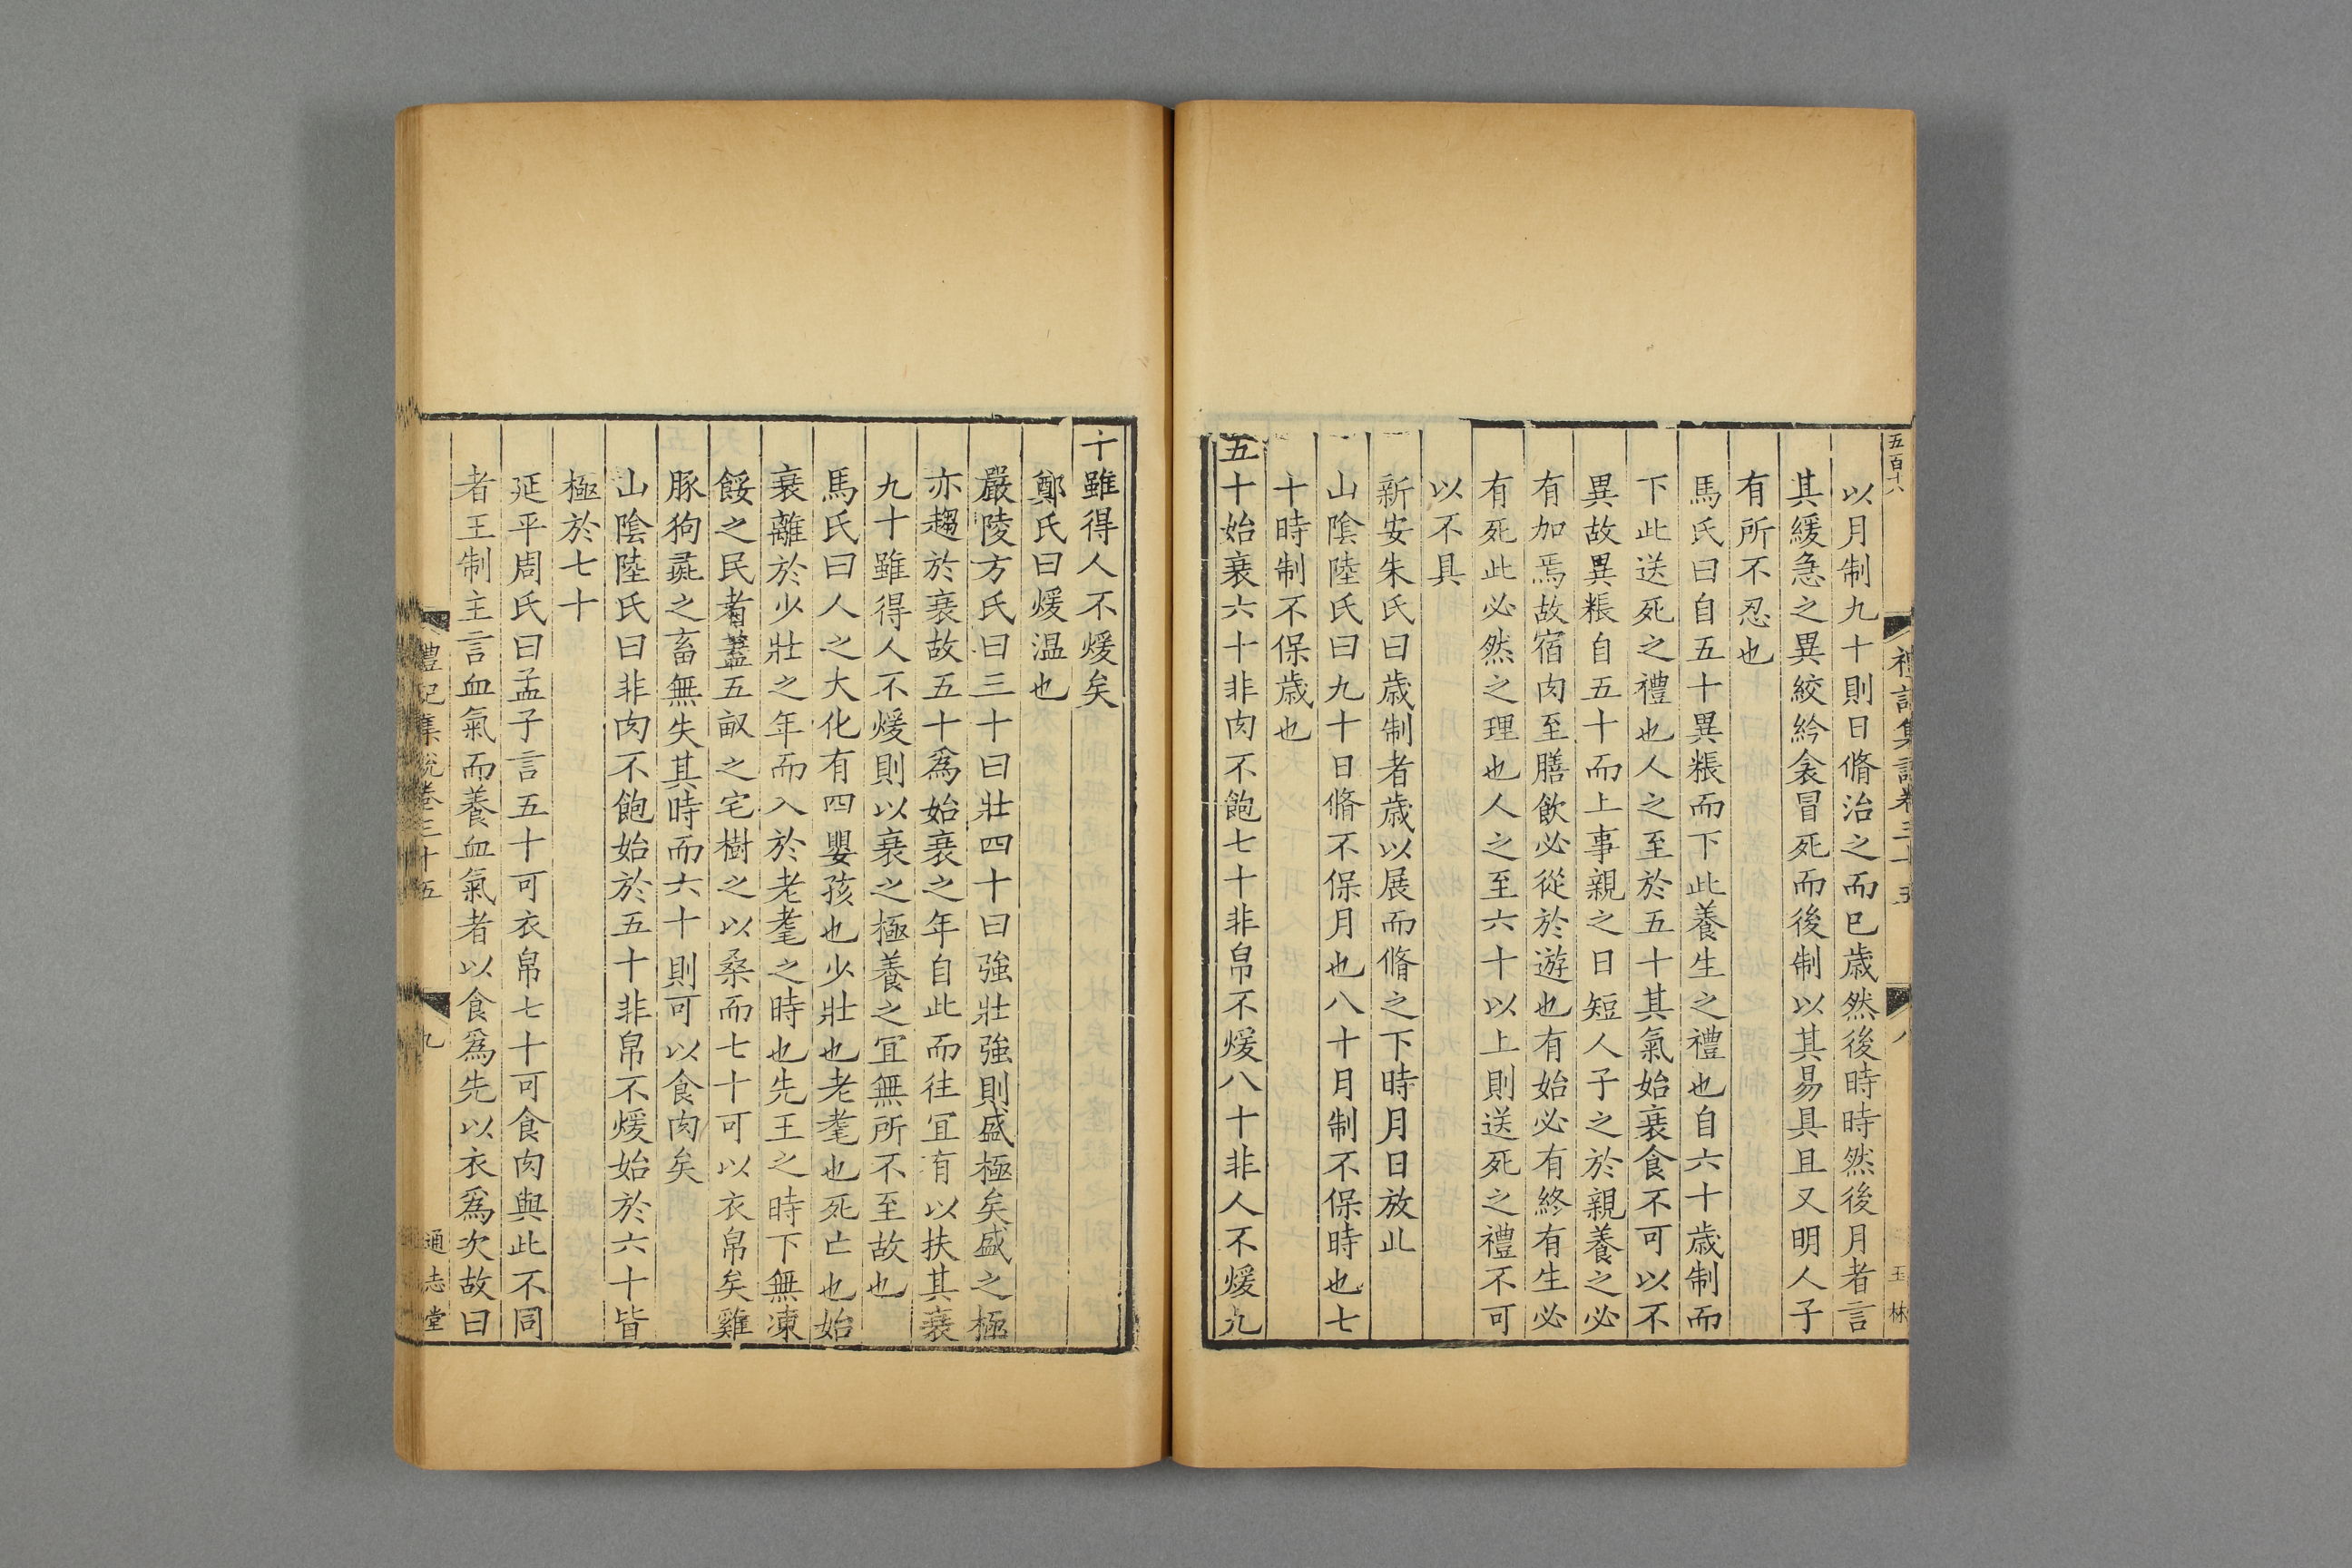 五百十八
禮記集說卷三十五
八
玉林
以月制九十則日脩治之而已歲然後時時然後月者言
其緩急之異絞紟衾冒死而後制以其易具且又明人子
有所不忍也
馬氏曰自五十異粻而下此養生之禮也自六十歲制而
下此送死之禮也人之至於五十其氣始衰食不可以不
異故異粻自五十而上事親之日短人子之於親養之必
有加焉故宿肉至膳飲必從於遊也有始必有終有生必
有死此必然之理也人之至六十以上則送死之禮不可
以不具
新安朱氏曰歲制者歲以展而脩之下時月日放此
山陰陸氏曰九十日脩不保月也八十月制不保時也七
十時制不保歲也
五十始衰六十非肉不飽七十非帛不煖八十非人不煖九
十雖得人不煖矣
鄭氏曰煖温也
嚴陵方氏曰三十曰壯四十曰強壯強則盛極矣盛之極
亦趨於衰故五十爲始衰之年自此而往宜有以扶其衰
九十雖得人不煖則以衰之極養之宜無所不至故也
馬氏曰人之大化有四嬰孩也少壯也老耄也死亡也始
衰離於少壯之年而入於老耄之時也先王之時下無凍
餒之民者蓋五畝之宅樹之以桑而七十可以衣帛矣雞
豚狗彘之畜無失其時而六十則可以食肉矣
山陰陸氏曰非肉不飽始於五十非帛不煖始於六十皆
極於七十
延平周氏曰孟子言五十可衣帛七十可食肉與此不同
者王制主言血氣而養血氣者以食爲先以衣爲次故曰
禮記集說卷三十五
九
通志堂